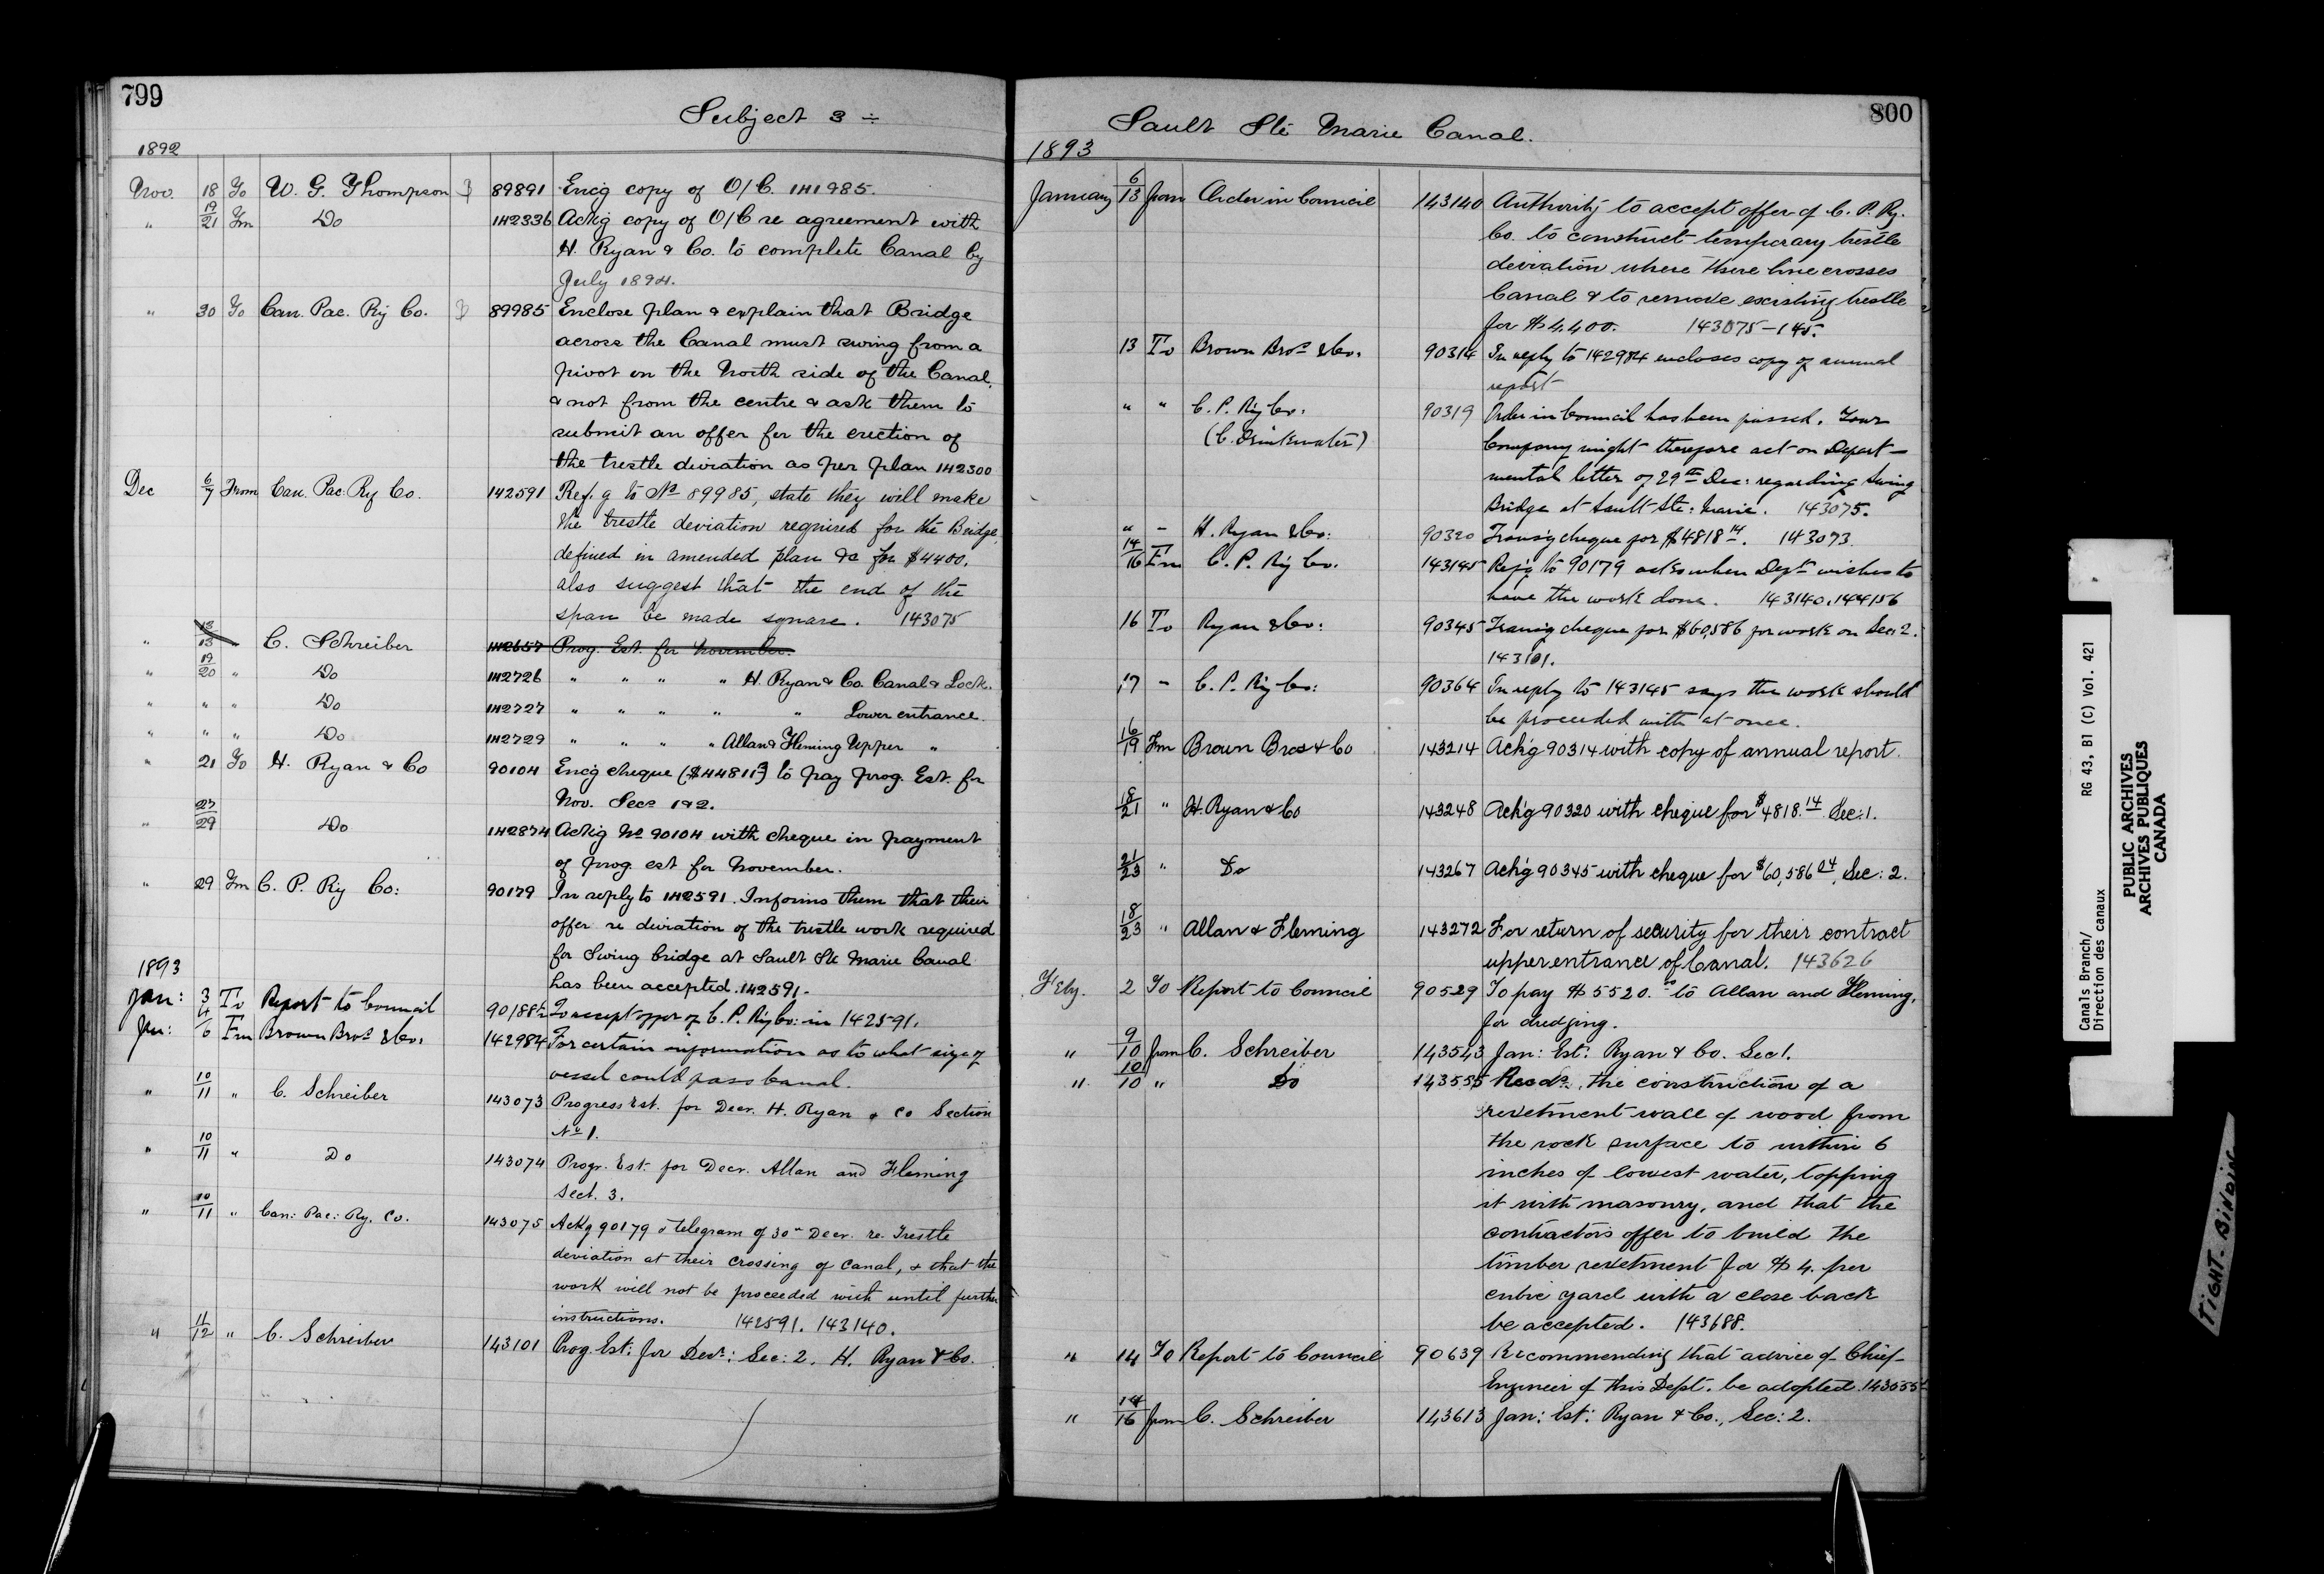 799
Subject 3 ÷
1892
Nov. 18 To W. G. Thompson 89891 Enc'g copy of O/C. 141985.
" 19/21 Fm Do 142336 Ack'g copy of O/C re agreement with
H. Ryan & Co. to complete Canal by
July 1894.
" 30 To Can. Pac. Ry Co. 89985 Enclose plan & explain that Bridge
across the Canal must swing from a
pivot on the North side of the Canal,
& not from the centre & ask them to
submit an offer for the erection of
the trestle deviation as per plan 142300
Dec 6/7 From Can. Pac. Ry Co. 142591 Ref.g to No 89985, state they will make
the trestle deviation required for the Bridge,
defined in amended plan &c for $4400.
also suggest that the end of the
span be made square. 143075
" 13 C. Schreiber 142657 Prog. Est. for November.
" 19/20 " Do 142726 " " " " H. Ryan & Co. Canal & Lock.
" " " Do 142727 " " " " " Lower entrance.
" " " Do 142729 " " " " Allan & Fleming Upper "
" 21 To H. Ryan & Co 90104 Enc'g cheque to pay prog. Est. for
Nov. Secs 1 & 2.
" 27/29 Do 142874 Ack'g No 90104 with cheque in payment
of prog. est for November.
" 29 Fm C. P. Ry Co: 90179 In reply to 142591. Informs them that their
offer re deviation of the trestle work required
for Swing bridge at Sault Ste Marie Canal
has been accepted. 142591.
1893
Jan: 3 To Report to Council 90188½ To accept offer of C. P. Ry Co: in 142591.
Jan: 4/6 Fm Brown Bros & Co. 142984 For certain information as to what size of
vessel could pass Canal.
" 10/11 " C. Schreiber 143073 Progress Est. for Decr. H. Ryan & Co Section
No 1.
" 10/11 " Do 143074 Progr. Est. for Decr. Allan and Fleming
Sect. 3.
" 10/11 " Can: Pac: Ry. Co. 143075 Ack'g 90179 & telegram of 30th Decr. re. Trestle
deviation at their crossing of Canal, & that the
work will not be proceeded with until further
instructions. 142591. 143140.
" 11/12 " C. Schreiber 143101 Prog. Est: for Decr: Sec: 2. H. Ryan & Co.
800
Sault Ste Marie Canal.
1893
January 6/13 from Order in Council 143140 Authority to accept offer of C. P. Ry.
Co. to construct temporary trestle
deviation where there line crosses
Canal & to remove existing trestle
for $4,400. 143075-145.
13 To Brown Bros & Co. 90314 In reply to 142984 encloses copy of annual
report
" " C. P. Ry Co. 90319 Order in Council has been passed. Your
(C. Drinkwater) Company might therefore act on Depart-
mental letter of 29th Dec: regarding Swing
Bridge at Sault Ste: Marie. 143075.
" - H. Ryan & Co: 90320 Transg cheque for $4818.14. 143073
14/16 Fm C. P. Ry Co. 143145 Ref'g to 90179 asks when Dept wishes to
have the work done. 143140. 144156
16 To Ryan & Co: 90345 Transg cheque for $60,586 for work on Sec. 2.
143101.
17 - C. P. Ry Co: 90364 In reply to 143145 says the work should
be proceeded with at once.
16/19 Fm Brown Bros & Co 143214 Ack'g 90314 with copy of annual report.
18/21 " H. Ryan & Co 143248 Ack'g 90320 with cheque for $4818.14 Sec: 1.
21/23 " Do 143267 Ack'g 90345 with cheque for $60,586.04, Sec: 2.
18/23 " Allan & Fleming 143272 For return of security for their contract
upper entrance of Canal. 143626
Feby. 2 To Report to Council 90529 To pay $5520.00 to Allan and Fleming,
for dredging.
" 9/10 from C. Schreiber 143543 Jan: Est: Ryan & Co. Sec 1.
" 10/10 " Do 143555 Recds. the construction of a
revetment wall of wood from
the rock surface to within 6
inches of lowest water, topping
it with masonry, and that the
contractors offer to build the
timber revetment for $4. per
cubic yard with a close back
be accepted. 143688.
" 14 To Report to Council 90639 Recommending that advice of Chief
Engineer of this Dept. be adopted. 143555
" 14/16 from C. Schreiber 143613 Jan: Est: Ryan & Co., Sec: 2.
Canals Branch/ RG 43, B1 (C) Vol. 421
Direction des canaux
PUBLIC ARCHIVES
ARCHIVES PUBLIQUES
CANADA
TIGHT BINDING